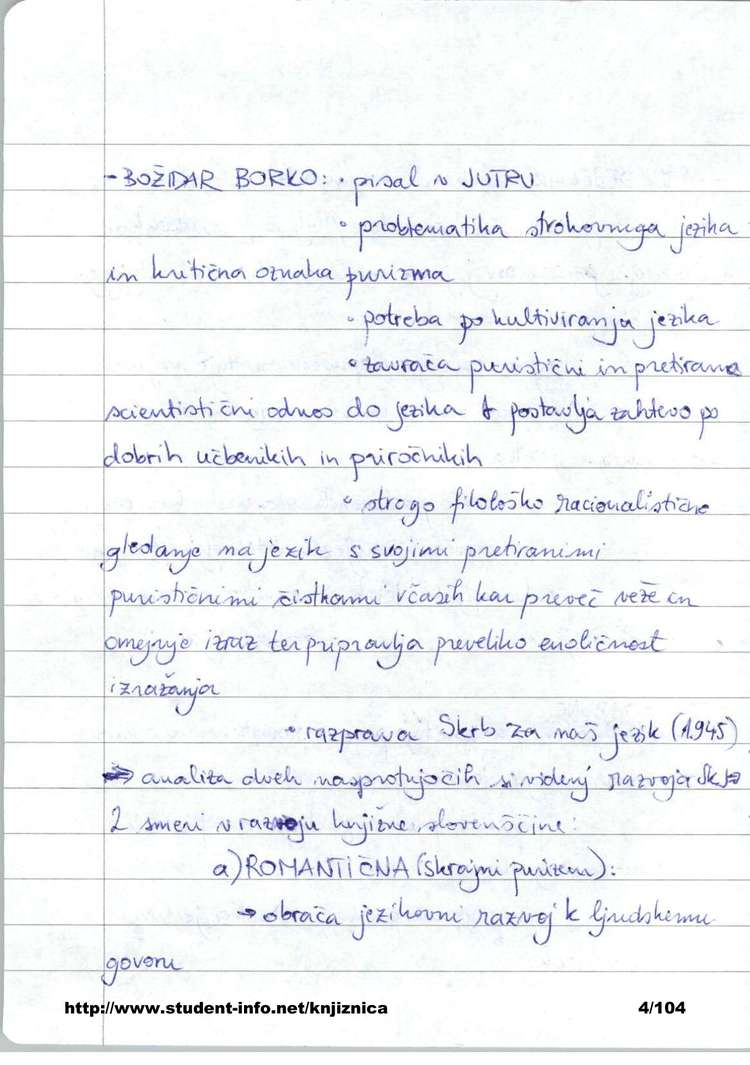 - BOŽIDAR BORKO: • pisal v JUTRU
• problematika strokovnega jezika
in kritična oznaka purizma
• potreba po kultiviranju jezika
• zavrača puristični in pretirano
scientistični odnos do jezika & postavlja zahtevo po
dobrih učbenikih in priročnikih
• strogo filološko racionalistično
gledanje na jezik s svojimi pretiranimi
purističnimi čistkami včasih kar preveč veže in
omejuje izraz ter pripravlja preveliko enoličnost
izražanja
• razprava Skrb za naš jezik (1945)
⇒ analiza dveh nasprotujočih si videnj razvoja SKJ ⇒
2 smeri v razvoju knjižne slovenščine:
a) ROMANTIČNA (skrajni purizem):
→ obrača jezikovni razvoj k ljudskemu
govoru
http://www.student-info.net/knjiznica 4/104